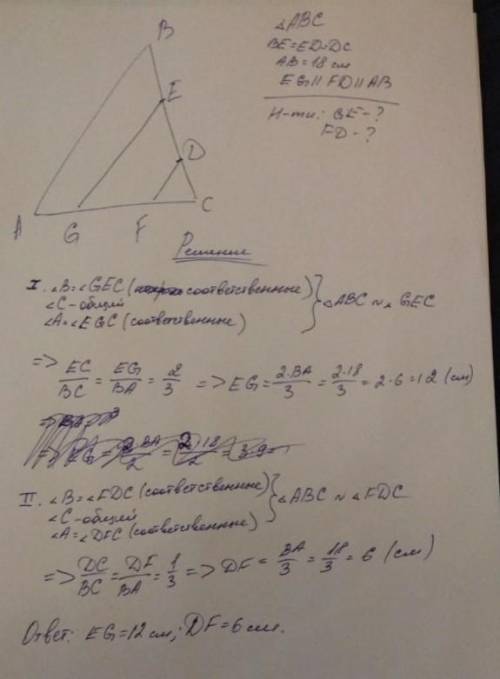 △ABC
BE=ED=DC
AB=18 см
EG∥FD∥AB
Н-ти: GE-?
FD-?
B
E
D
A G F C
Решение
I. ∠B=∠GEC (соответственные)
∠C-общий
∠A=∠EGC (соответственные)
△ABC ~ △GEC
=> EC/BC = EG/BA = 2/3 => EG = 2·BA/3 = 2·18/3 = 2·6 = 12 (см)
II. ∠B=∠FDC (соответственные)
∠C-общий
∠A=∠DFC (соответственные)
△ABC ~ △FDC
=> DC/BC = DF/BA = 1/3 => DF = BA/3 = 18/3 = 6 (см)
Ответ: EG=12 см; DF=6 см.